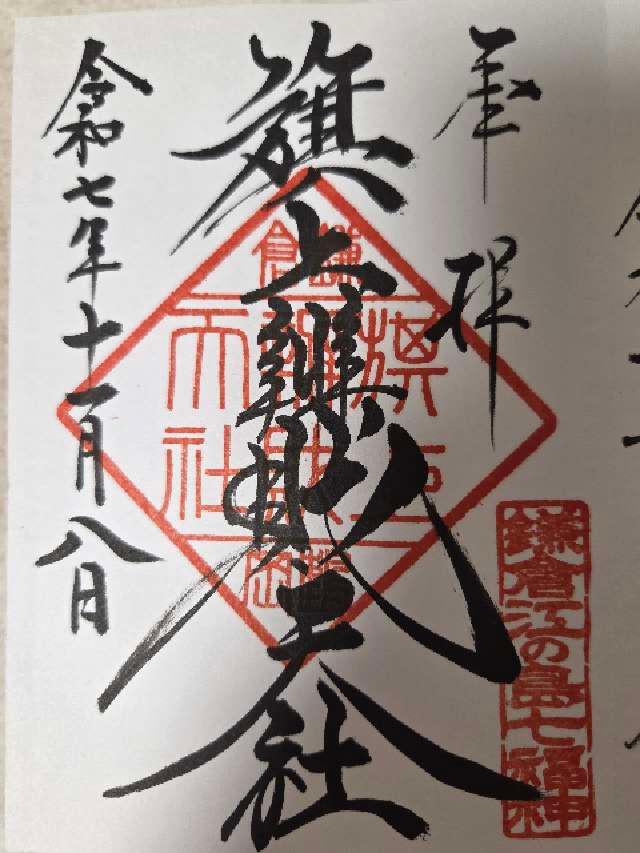 奉拝
旗上辨財天社
令和七年十一月八日
鎌倉
旗上
辨財
天社
鎌倉江の島七福神